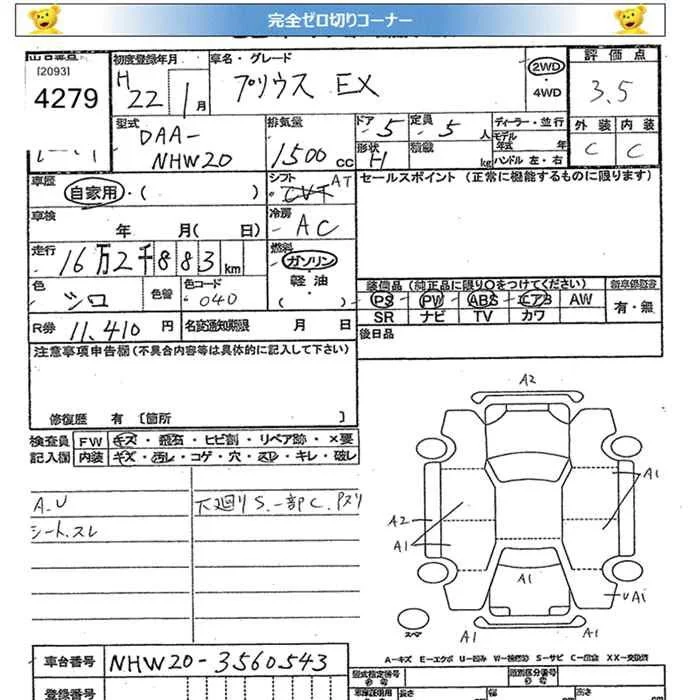 完全ゼロ切りコーナー
[2093]
4279
初度登録年月
H 22年 1月
車名・グレード
プリウス EX
2WD
・4WD
評価点
3.5
外装 内装
C C
型式
DAA-
NHW20
排気量
1500 cc
ドア 5
形状 H
定員 5人
積載 kg
ディーラー・並行
モデル年式 年
ハンドル 左・右
車歴
自家用・( )
シフト
CVT AT
セールスポイント (正常に機能するものに限ります)
車検
年 月( 日)
冷房
AC
走行
16万2千883km
燃料
ガソリン
軽油
( )
色
シロ
色替
色コード
040
装備品 (純正品に限り○をつけてください)
PS PW ABS エアB AW
SR ナビ TV カワ
新車保証書
有・無
R券 11,410円
名変通知期限 月 日
後日品
注意事項申告欄 (不具合内容等は具体的に記入して下さい)
修復歴 有 [箇所 ]
検査員 FW キズ・飛石・ヒビ割・リペア跡・×要
記入欄 内装 キズ・汚レ・コゲ・穴・スレ・キレ・破レ
A.U
シート.スレ
下廻りS.一部C.Pズリ
A2
A1
A2
A1
A1
UA1
A1
A1
スペア
A-キズ E-エクボ U-凹み W-補修跡 S-サビ C-腐食 XX-交換済
車台番号 NHW20-3560543
登録番号
型式指定番号
類別区分番号
長さ
幅
高さ